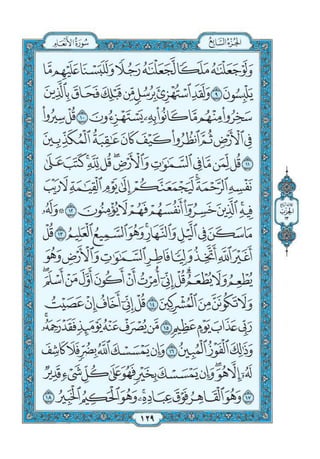 الجزء السابع
سورة الأنعام
وَلَوْ جَعَلْنَٰهُ مَلَكًا لَّجَعَلْنَٰهُ رَجُلًا وَلَلَبَسْنَا عَلَيْهِم مَّا
يَلْبِسُونَ ٩ وَلَقَدِ ٱسْتُهْزِئَ بِرُسُلٍ مِّن قَبْلِكَ فَحَاقَ بِٱلَّذِينَ
سَخِرُوا۟ مِنْهُم مَّا كَانُوا۟ بِهِۦ يَسْتَهْزِءُونَ ١٠ قُلْ سِيرُوا۟
فِى ٱلْأَرْضِ ثُمَّ ٱنظُرُوا۟ كَيْفَ كَانَ عَٰقِبَةُ ٱلْمُكَذِّبِينَ
١١ قُل لِّمَن مَّا فِى ٱلسَّمَٰوَٰتِ وَٱلْأَرْضِ ۖ قُل لِّلَّهِ ۚ كَتَبَ عَلَىٰ
نَفْسِهِ ٱلرَّحْمَةَ ۚ لَيَجْمَعَنَّكُمْ إِلَىٰ يَوْمِ ٱلْقِيَٰمَةِ لَا رَيْبَ
فِيهِ ۚ ٱلَّذِينَ خَسِرُوٓا۟ أَنفُسَهُمْ فَهُمْ لَا يُؤْمِنُونَ ١٢ ۞ وَلَهُۥ
مَا سَكَنَ فِى ٱلَّيْلِ وَٱلنَّهَارِ ۚ وَهُوَ ٱلسَّمِيعُ ٱلْعَلِيمُ ١٣ قُلْ
أَغَيْرَ ٱللَّهِ أَتَّخِذُ وَلِيًّا فَاطِرِ ٱلسَّمَٰوَٰتِ وَٱلْأَرْضِ وَهُوَ
يُطْعِمُ وَلَا يُطْعَمُ ۗ قُلْ إِنِّىٓ أُمِرْتُ أَنْ أَكُونَ أَوَّلَ مَنْ أَسْلَمَ ۖ
وَلَا تَكُونَنَّ مِنَ ٱلْمُشْرِكِينَ ١٤ قُلْ إِنِّىٓ أَخَافُ إِنْ عَصَيْتُ
رَبِّى عَذَابَ يَوْمٍ عَظِيمٍ ١٥ مَّن يُصْرَفْ عَنْهُ يَوْمَئِذٍ فَقَدْ رَحِمَهُۥ ۚ
وَذَٰلِكَ ٱلْفَوْزُ ٱلْمُبِينُ ١٦ وَإِن يَمْسَسْكَ ٱللَّهُ بِضُرٍّ فَلَا كَاشِفَ
لَهُۥٓ إِلَّا هُوَ ۖ وَإِن يَمْسَسْكَ بِخَيْرٍ فَهُوَ عَلَىٰ كُلِّ شَىْءٍ قَدِيرٌ
١٧ وَهُوَ ٱلْقَاهِرُ فَوْقَ عِبَادِهِۦ ۚ وَهُوَ ٱلْحَكِيمُ ٱلْخَبِيرُ ١٨
١٢٩